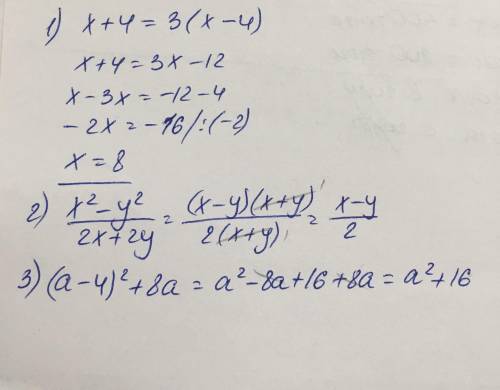 1) x+4=3(x-4)
x+4=3x-12
x-3x=-12-4
-2x=-16/:(-2)
x=8
2) x²-y²/2x+2y = (x-y)(x+y)/2(x+y) = x-y/2
3) (a-4)²+8a=a²-8a+16+8a=a²+16